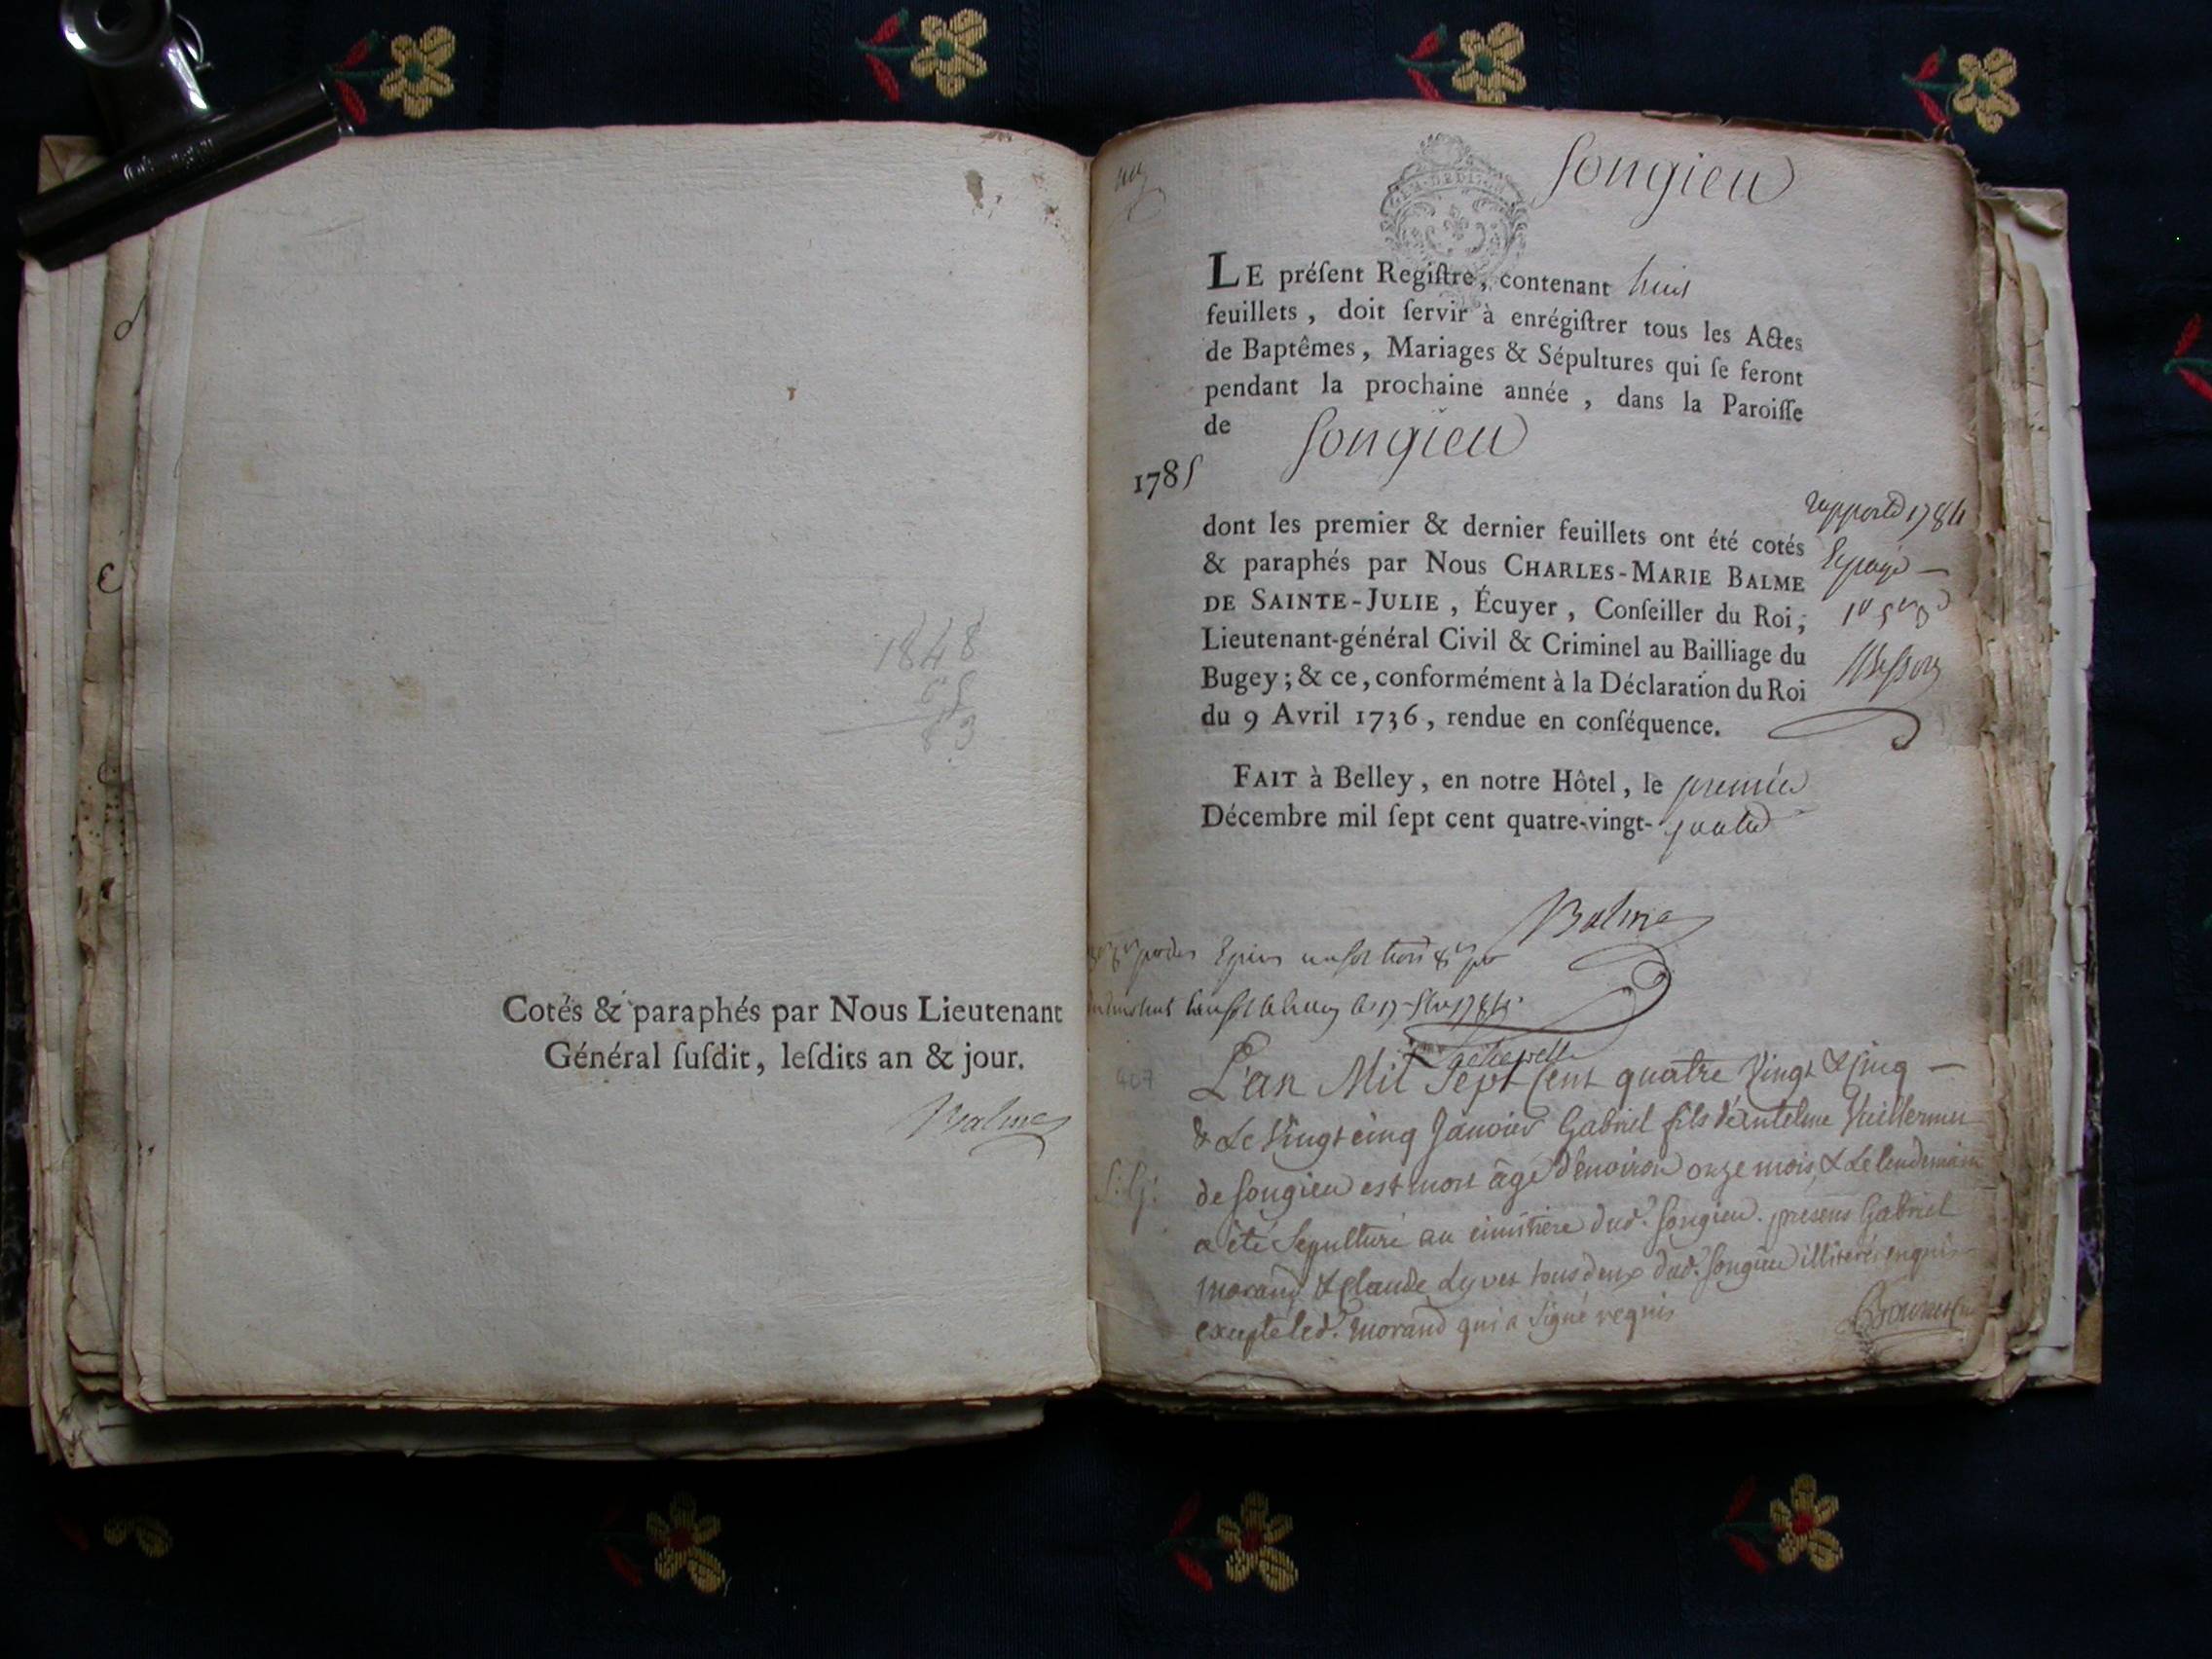 1848
Cotés & paraphés par Nous Lieutenant
Général ſuſdit, leſdits an & jour.
Balme
Songieu
LE préſent Regiſtre, contenant huit
feuillets, doit ſervir à enrégiſtrer tous les Actes
de Baptêmes, Mariages & Sépultures qui ſe feront
pendant la prochaine année, dans la Paroiſſe
de Songieu
1785
dont les premier & dernier feuillets ont été cotés
& paraphés par Nous CHARLES-MARIE BALME
DE SAINTE-JULIE, Écuyer, Conſeiller du Roi,
Lieutenant-général Civil & Criminel au Bailliage du
Bugey; & ce, conformément à la Déclaration du Roi
du 9 Avril 1736, rendue en conſéquence.
rapporté 1784
FAIT à Belley, en notre Hôtel, le premier
Décembre mil ſept cent quatre-vingt-quatre
Balme
L'an Mil Sept Cent quatre Vingt & Cinq
& Le Vingt cinq Janvier Gabriel fils d'Antelme Vuillermet
de Songieu est mort âgé d'environ onze mois & Le lendemain
a été Sepulturé au cimitière dud. Songieu. présens Gabriel
morand & Claude Lyvet tous deux dud. Songieu illiterés enquis
excepté led. morand qui a Signé requis